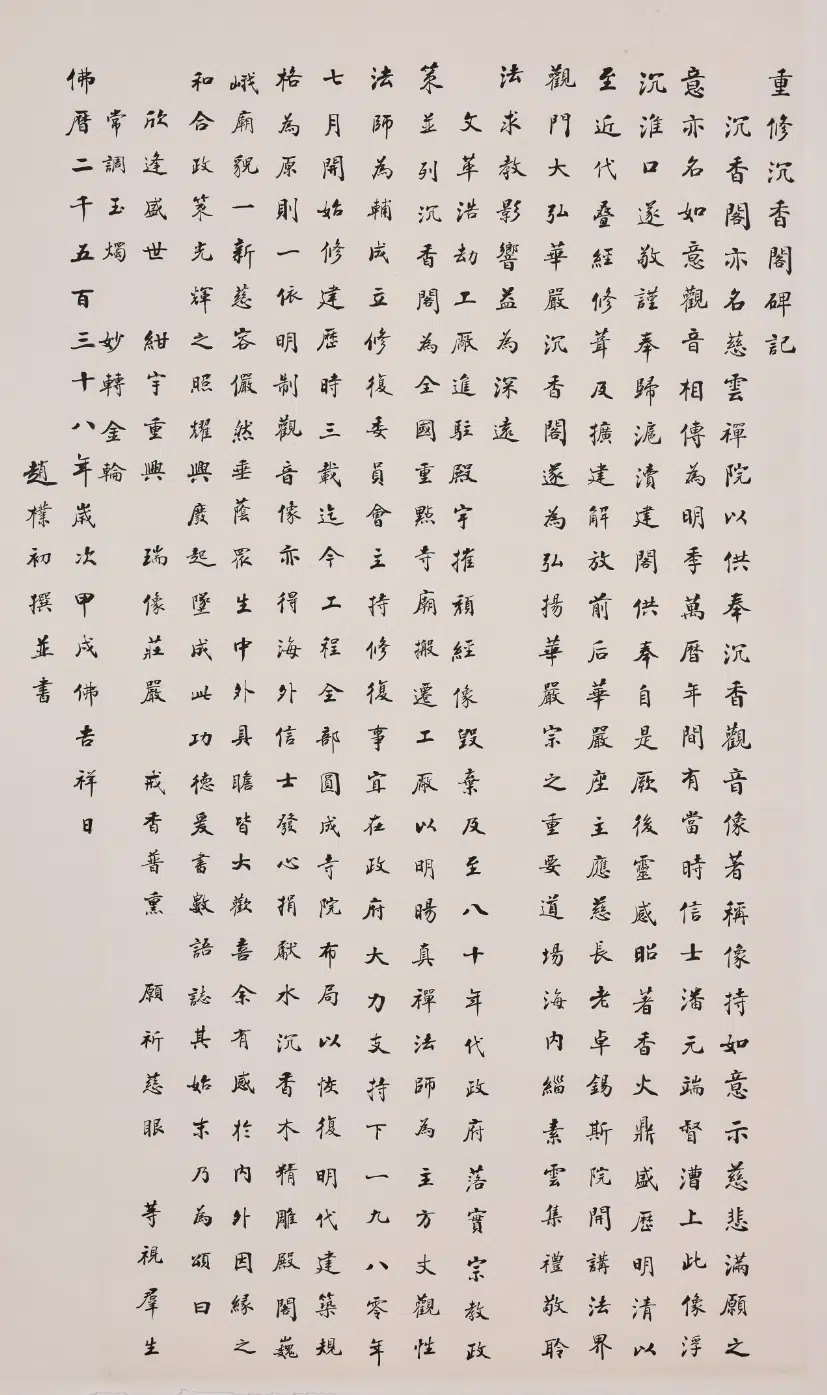 重修沉香閣碑記
沉香閣亦名慈雲禪院以供奉沉香觀音像著稱像持如意示慈悲滿願之
意亦名如意觀音相傳為明季萬曆年間有當時信士潘元端督漕上此像浮
沉淮口遂敬謹奉歸滬瀆建閣供奉自是厥後靈感昭著香火鼎盛歷明清以
至近代叠經修葺及擴建解放前后華嚴座主應慈長老卓錫斯院開講法界
觀門大弘華嚴沉香閣遂為弘揚華嚴宗之重要道場海內緇素雲集禮敬聆
法求教影響益為深遠
文革浩劫工厰進駐殿宇摧頹經像毀棄及至八十年代政府落實宗教政
策並列沉香閣為全國重點寺廟搬遷工厰以明暘真禪法師為主方丈觀性
法師為輔成立修復委員會主持修復事宜在政府大力支持下一九八零年
七月開始修建歷時三載迄今工程全部圓成寺院布局以恢復明代建築規
格為原則一依明制觀音像亦得海外信士發心捐獻水沉香木精雕殿閣巍
峨廟貌一新慈容儼然垂蔭眾生中外具瞻皆大歡喜余有感於內外因緣之
和合政策光輝之照耀興廢起墜成此功德爰書數語誌其始末乃為頌曰
欣逢盛世 紺宇重興 瑞像莊嚴 戒香普熏 願祈慈眼 等視羣生
常調玉燭 妙轉金輪
佛曆二千五百三十八年歲次甲戌佛吉祥日
趙樸初撰並書